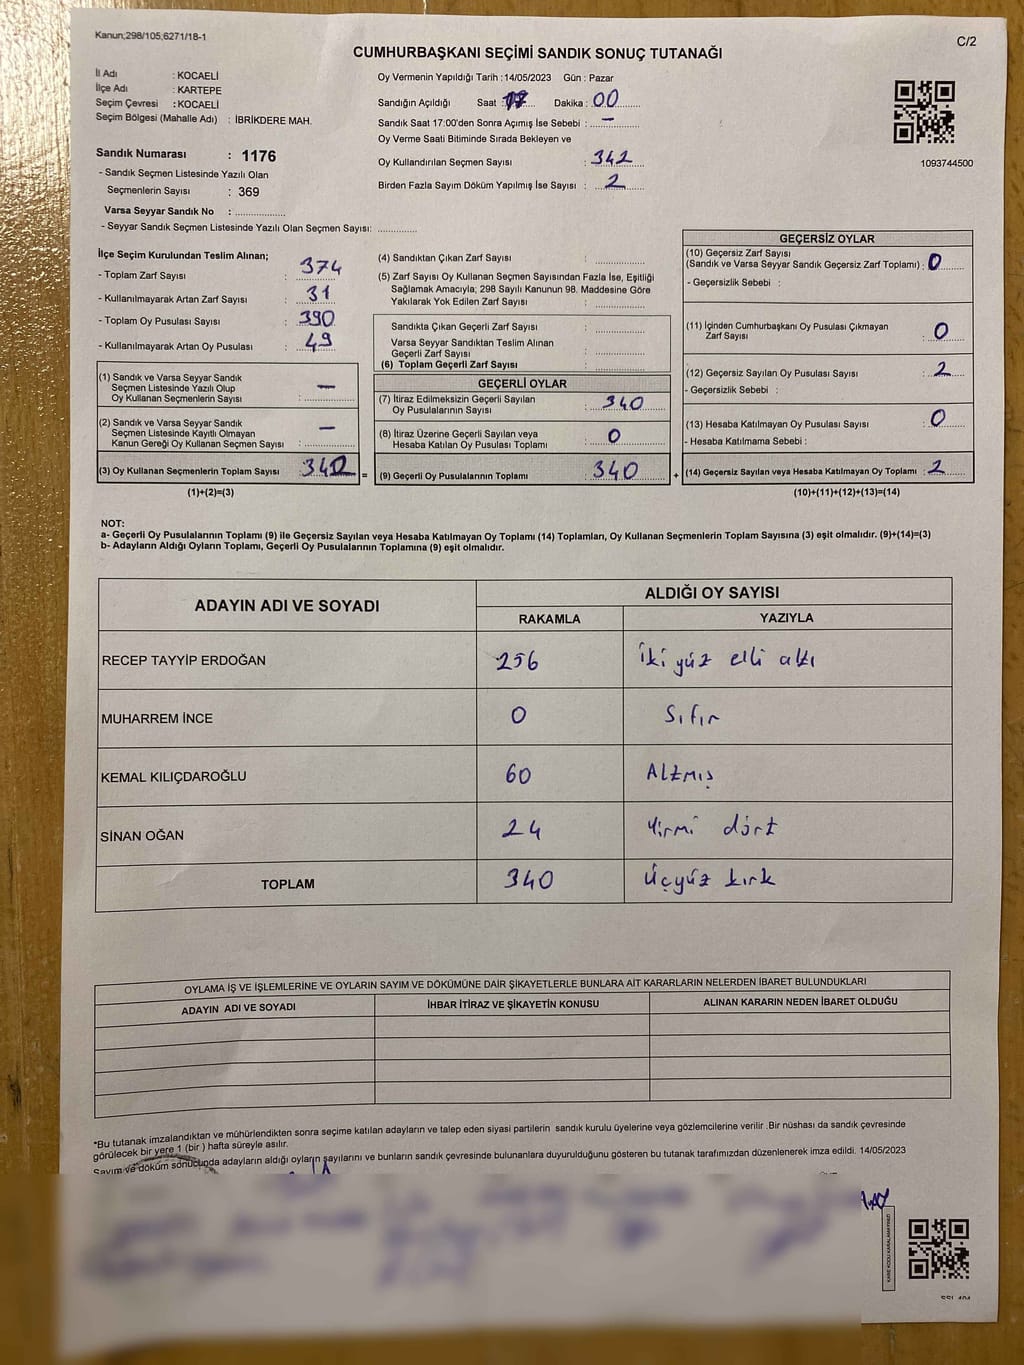 Kanun;298/105;6271/18-1
C/2
CUMHURBAŞKANI SEÇİMİ SANDIK SONUÇ TUTANAĞI
İl Adı : KOCAELİ
İlçe Adı : KARTEPE
Seçim Çevresi : KOCAELİ
Seçim Bölgesi (Mahalle Adı) : İBRİKDERE MAH.
Sandık Numarası : 1176
- Sandık Seçmen Listesinde Yazılı Olan
Seçmenlerin Sayısı : 369
Varsa Seyyar Sandık No : ................
- Seyyar Sandık Seçmen Listesinde Yazılı Olan Seçmen Sayısı: ............
Oy Vermenin Yapıldığı Tarih : 14/05/2023 Gün : Pazar
Sandığın Açıldığı Saat : 17 Dakika : 00
Sandık Saat 17:00'den Sonra Açımış İse Sebebi : -
Oy Verme Saati Bitiminde Sırada Bekleyen ve
Oy Kullandırılan Seçmen Sayısı : 342
Birden Fazla Sayım Döküm Yapılmış İse Sayısı : 2
1093744500
İlçe Seçim Kurulundan Teslim Alınan;
- Toplam Zarf Sayısı : 374
- Kullanılmayarak Artan Zarf Sayısı : 31
- Toplam Oy Pusulası Sayısı : 390
- Kullanılmayarak Artan Oy Pusulası : 49
(1) Sandık ve Varsa Seyyar Sandık
Seçmen Listesinde Yazılı Olup
Oy Kullanan Seçmenlerin Sayısı : -
(2) Sandık ve Varsa Seyyar Sandık
Seçmen Listesinde Kayıtlı Olmayan
Kanun Gereği Oy Kullanan Seçmen Sayısı : -
(3) Oy Kullanan Seçmenlerin Toplam Sayısı : 342 =
(1)+(2)=(3)
(4) Sandıktan Çıkan Zarf Sayısı :
(5) Zarf Sayısı Oy Kullanan Seçmen Sayısından Fazla İse, Eşitliği
Sağlamak Amacıyla; 298 Sayılı Kanunun 98. Maddesine Göre
Yakılarak Yok Edilen Zarf Sayısı :
Sandıkta Çıkan Geçerli Zarf Sayısı :
Varsa Seyyar Sandıktan Teslim Alınan
Geçerli Zarf Sayısı :
(6) Toplam Geçerli Zarf Sayısı :
GEÇERLİ OYLAR
(7) İtiraz Edilmeksizin Geçerli Sayılan
Oy Pusulalarının Sayısı : 340
(8) İtiraz Üzerine Geçerli Sayılan veya
Hesaba Katılan Oy Pusulası Toplamı : 0
(9) Geçerli Oy Pusulalarının Toplamı : 340 +
GEÇERSİZ OYLAR
(10) Geçersiz Zarf Sayısı
(Sandık ve Varsa Seyyar Sandık Geçersiz Zarf Toplamı) : 0
- Geçersizlik Sebebi :
(11) İçinden Cumhurbaşkanı Oy Pusulası Çıkmayan
Zarf Sayısı : 0
(12) Geçersiz Sayılan Oy Pusulası Sayısı : 2
- Geçersizlik Sebebi :
(13) Hesaba Katılmayan Oy Pusulası Sayısı : 0
- Hesaba Katılmama Sebebi :
(14) Geçersiz Sayılan veya Hesaba Katılmayan Oy Toplamı : 2
(10)+(11)+(12)+(13)=(14)
NOT:
a- Geçerli Oy Pusulalarının Toplamı (9) ile Geçersiz Sayılan veya Hesaba Katılmayan Oy Toplamı (14) Toplamları, Oy Kullanan Seçmenlerin Toplam Sayısına (3) eşit olmalıdır. (9)+(14)=(3)
b- Adayların Aldığı Oyların Toplamı, Geçerli Oy Pusulalarının Toplamına (9) eşit olmalıdır.
ADAYIN ADI VE SOYADI
ALDIĞI OY SAYISI
RAKAMLA YAZIYLA
RECEP TAYYİP ERDOĞAN 256 iki yüz elli altı
MUHARREM İNCE 0 Sıfır
KEMAL KILIÇDAROĞLU 60 Altmış
SİNAN OĞAN 24 Yirmi dört
TOPLAM 340 Üçyüz kırk
OYLAMA İŞ VE İŞLEMLERİNE VE OYLARIN SAYIM VE DÖKÜMÜNE DAİR ŞİKAYETLERLE BUNLARA AİT KARARLARIN NELERDEN İBARET BULUNDUKLARI
ADAYIN ADI VE SOYADI İHBAR İTİRAZ VE ŞİKAYETİN KONUSU ALINAN KARARIN NEDEN İBARET OLDUĞU
*Bu tutanak imzalandıktan ve mühürlendikten sonra seçime katılan adayların ve talep eden siyasi partilerin sandık kurulu üyelerine veya gözlemcilerine verilir .Bir nüshası da sandık çevresinde
görülecek bir yere 1 (bir ) hafta süreyle asılır.
Sayım ve döküm sonucunda adayların aldığı oyların sayılarını ve bunların sandık çevresinde bulunanlara duyurulduğunu gösteren bu tutanak tarafımızdan düzenlenerek imza edildi. 14/05/2023